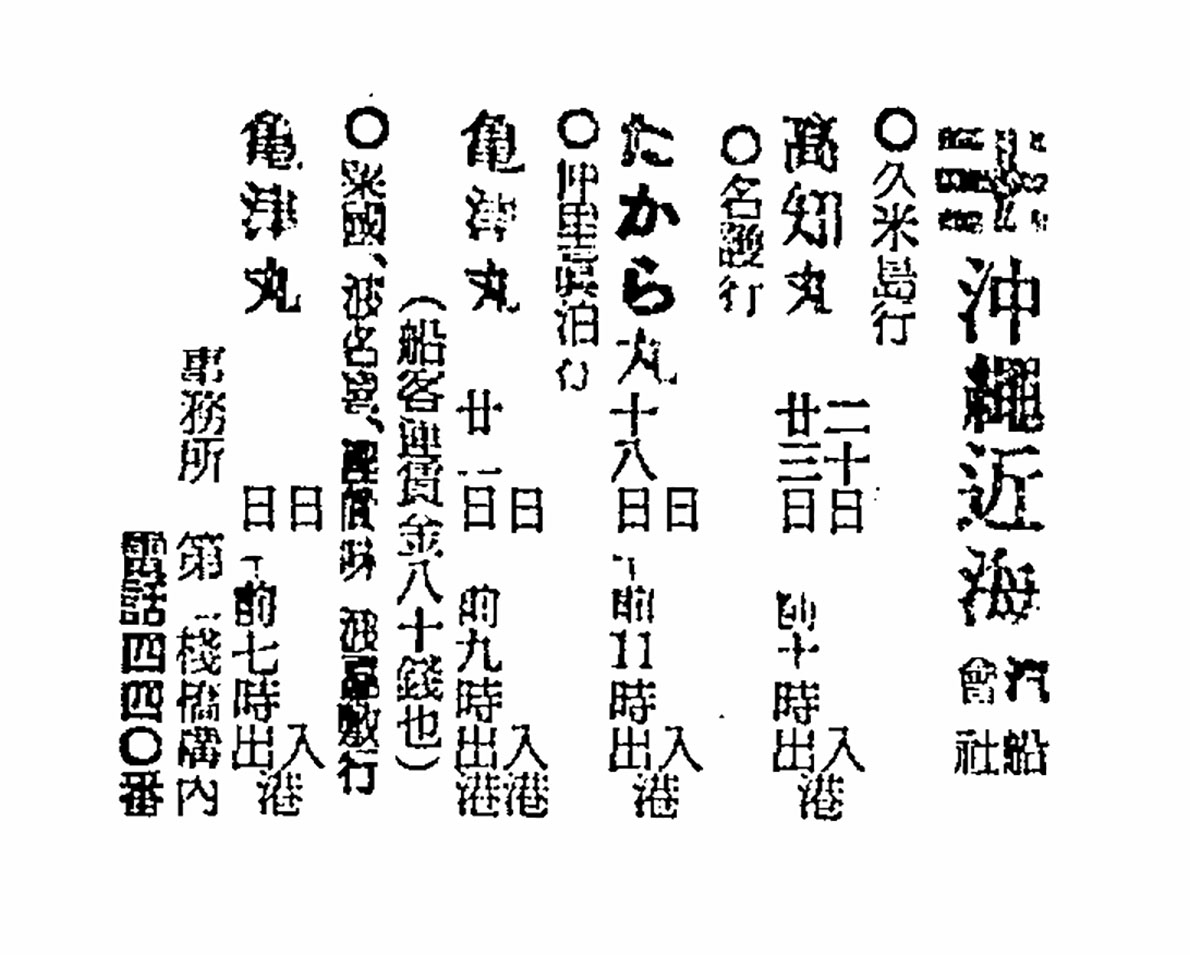 沖繩近海汽船會社
○久米島行
高知丸 二十日入港
廿三日 前十時出港
○名護行
たから丸 日入港
十八日 午前11時出港
○仲里眞泊行
亀津丸 日入港
廿一日 前九時出港
(船客運賃金八十錢也)
○粟國、渡名喜、座間味 渡嘉敷行
亀津丸 日入港
日 午前七時出港
事務所 第一棧橋構內
電話四四〇番